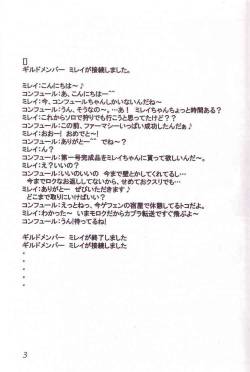 []
ギルドメンバー ミレイが接続しました。
ミレイ:こんにちは〜
コンフュール:あ、こんにちは〜^^
ミレイ:今、コンフュールちゃんしかいないんだね〜
コンフュール:うん、そうなの〜。…あ! ミレイちゃんちょっと時間ある?
ミレイ:これからソロで狩りでも行こうと思ってたけど??
コンフュール:今日ね、ファーマシーいっぱい成功したんだぁ♪
ミレイ:おおー! おめでと〜!
コンフュール:ありがと〜^^ でね〜?
ミレイ:ん?
コンフュール:第一号完成品をミレイちゃんに貰って欲しいんだ〜。
ミレイ:え?いいの?
コンフュール:いいのいいの 今まで壁とかしてくれてるし、
今までロクなお返ししてないから、せめておクスリでも。
ミレイ:ありがとー ぜひいただきます♪
どこまで取りにいけばいい?
コンフュール:えっとねっ、今ゲフェンの宿屋で休憩してるトコだよ。
ミレイ:わかった〜 いまモロクだからカプラ転送ですぐ飛ぶよ〜
コンフュール:うん!待ってるね!
ギルドメンバー ミレイが終了しました
ギルドメンバー ミレイが接続しました
・
・
・
・
・
3